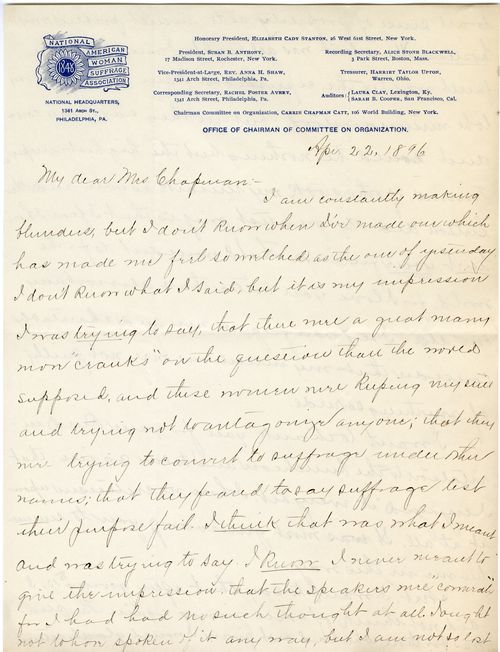 NATIONAL
AMERICAN
WOMAN
SUFFRAGE
ASSOCIATION
1848
NATIONAL HEADQUARTERS,
1341 ARCH ST.,
PHILADELPHIA, PA.
Honorary President, ELIZABETH CADY STANTON, 26 West 61st Street, New York.
President, SUSAN B. ANTHONY,
17 Madison Street, Rochester, New York.
Vice-President-at-Large, REV. ANNA H. SHAW,
1341 Arch Street, Philadelphia, Pa.
Corresponding Secretary, RACHEL FOSTER AVERY,
1341 Arch Street, Philadelphia, Pa.
Recording Secretary, ALICE STONE BLACKWELL,
3 Park Street, Boston, Mass.
Treasurer, HARRIET TAYLOR UPTON,
Warren, Ohio.
Auditors: LAURA CLAY, Lexington, Ky.
SARAH B. COOPER, San Francisco, Cal.
Chairman Committee on Organization, CARRIE CHAPMAN CATT, 106 World Building, New York.
OFFICE OF CHAIRMAN OF COMMITTEE ON ORGANIZATION.
Apr 22, 1896
My dear Mrs. Chapman:-
I am constantly making
blunders, but I don't know when I've made one which
has made me feel so wretched as the one of yesterday
I don't know what I said, but it is my impression
I was trying to say, that there were a great many
more "cranks" on the question than the world
supposed, and these women were keeping very still
and trying not to antagonize anyone; that they
were trying to convert to suffrage under other
names; that they feared to say suffrage lest
their purpose fail. I think that was what I meant
and was trying to say. I know I never meant to
give the impression that the speakers were cowards
for I had had no such thought at all. I ought
not to have spoken of it any way, but I am not so lost